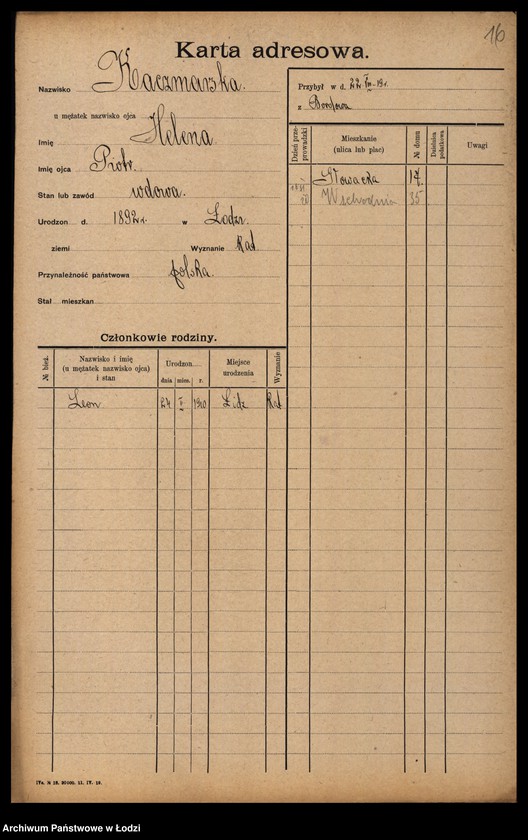 16
Karta adresowa.
Nazwisko Kaczmarska.
u mężatek nazwisko ojca
Imię Helena
Imię ojca Piotr.
Stan lub zawód wdowa.
Urodzon d. 1892 r. w Łodzi
ziemi Wyznanie kat
Przynależność państwowa polska.
Stał mieszkan
Członkowie rodziny.
№ bież. Nazwisko i imię (u mężatek nazwisko ojca) i stan Urodzon dnia mies. r. Miejsce urodzenia Wyznanie
Leon 24 II 1910 Łódź Kat
Przybył w d. 22 III-19 r.
z
Dzień przeprowadzki Mieszkanie (ulica lub plac) № domu Dzielnica podatkowa Uwagi
Nowacka 17.
Wschodnia 35
IVa. № 18. 30000. 11. IV. 19.
Archiwum Państwowe w Łodzi